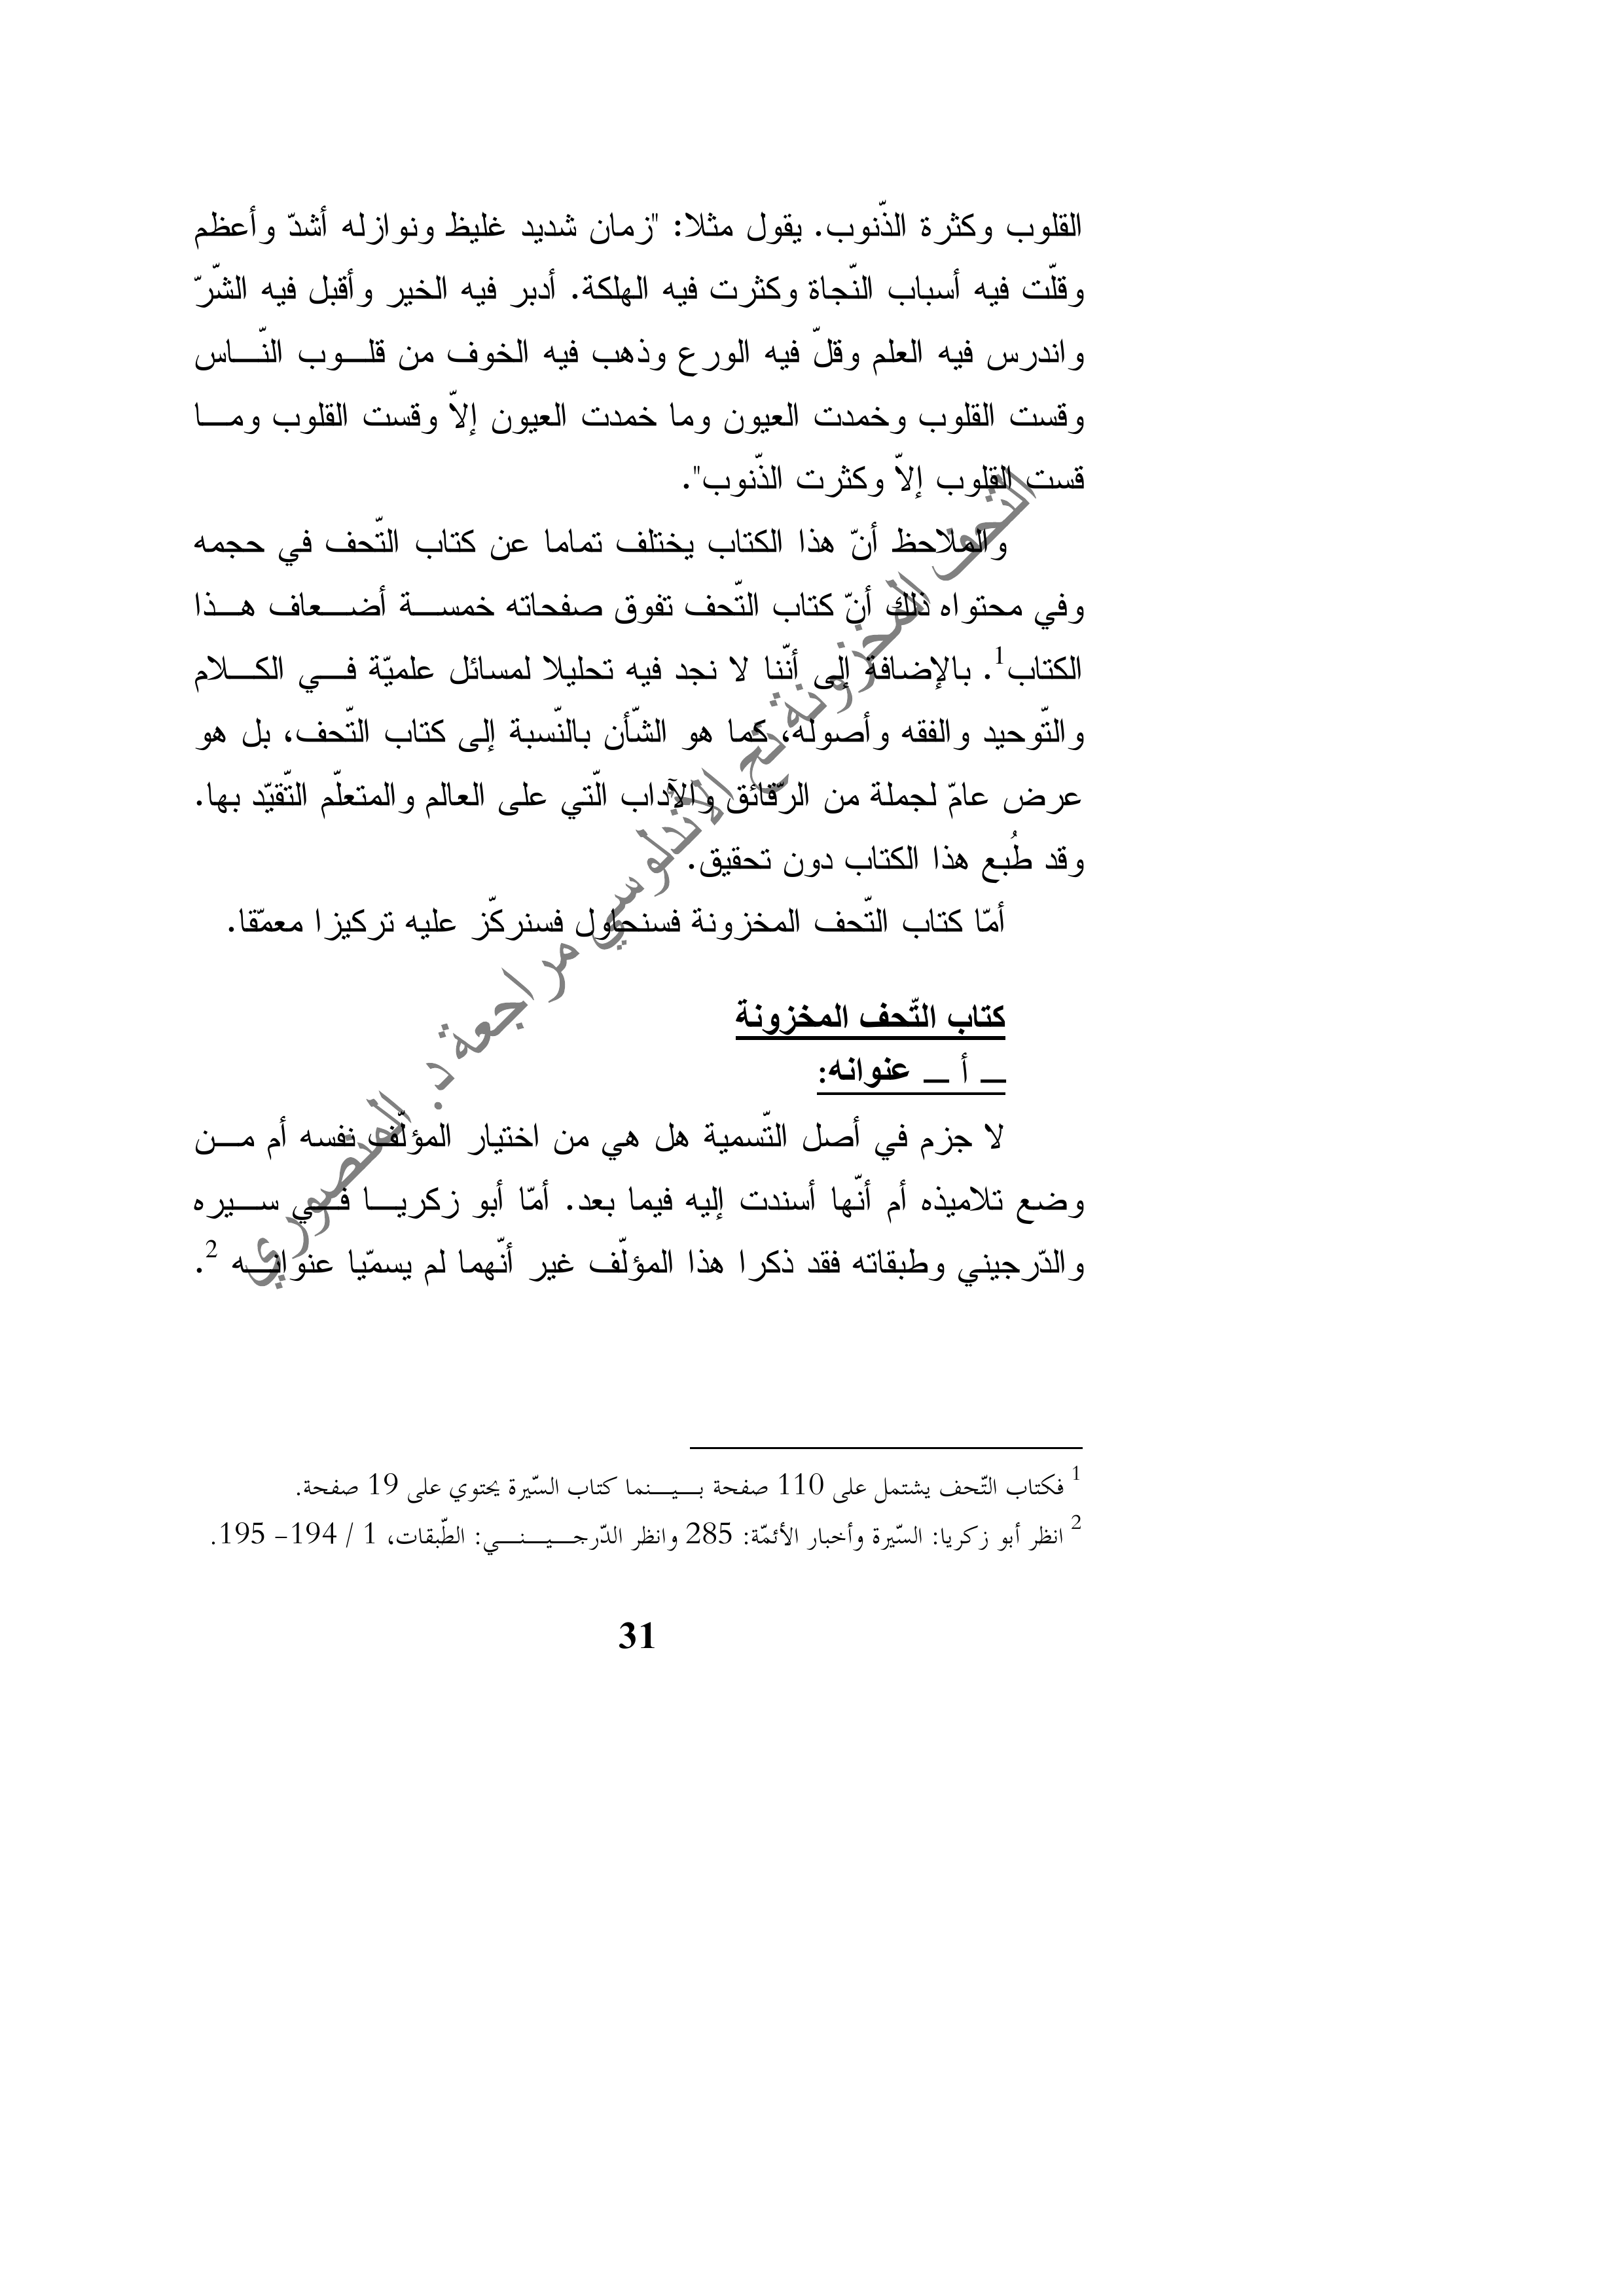 القلوب وكثرة الذّنوب. يقول مثلا: "زمان شديد غليظ ونوازله أشدّ وأعظم
وقلّت فيه أسباب النّجاة وكثرت فيه الهلكة. أدبر فيه الخير وأقبل فيه الشّرّ
واندرس فيه العلم وقلّ فيه الورع وذهب فيه الخوف من قلـــوب النّـــاس
وقست القلوب وخمدت العيون وما خمدت العيون إلاّ وقست القلوب ومـــا
قست القلوب إلاّ وكثرت الذّنوب".
والملاحظ أنّ هذا الكتاب يختلف تماما عن كتاب التّحف في حجمه
وفي محتواه ذلك أنّ كتاب التّحف تفوق صفحاته خمســـة أضـــعاف هـــذا
الكتاب1. بالإضافة إلى أنّنا لا نجد فيه تحليلا لمسائل علميّة فـــي الكـــلام
والتّوحيد والفقه وأصوله، كما هو الشّأن بالنّسبة إلى كتاب التّحف، بل هو
عرض عامّ لجملة من الرّقائق والآداب الّتي على العالم والمتعلّم التّقيّد بها.
وقد طُبع هذا الكتاب دون تحقيق.
أمّا كتاب التّحف المخزونة فسنحاول فسنركّز عليه تركيزا معمّقا.
كتاب التّحف المخزونة
ــ أ ــ عنوانه:
لا جزم في أصل التّسمية هل هي من اختيار المؤلّف نفسه أم مـــن
وضع تلاميذه أم أنّها أسندت إليه فيما بعد. أمّا أبو زكريـــا فـــي ســـيره
والدّرجيني وطبقاته فقد ذكرا هذا المؤلّف غير أنّهما لم يسمّيا عنوانـــه 2.
1 فكتاب التّحف يشتمل على 110 صفحة بـــيـــنما كتاب السّيرة يحتوي على 19 صفحة.
2 انظر أبو زكريا: السّيرة وأخبار الأئمّة: 285 وانظر الدّرجـــيـــنـــي: الطّبقات، 1 / 194– 195.
31
التحف المخزونة تح الاندلوسي مراجعة د. المنصوري